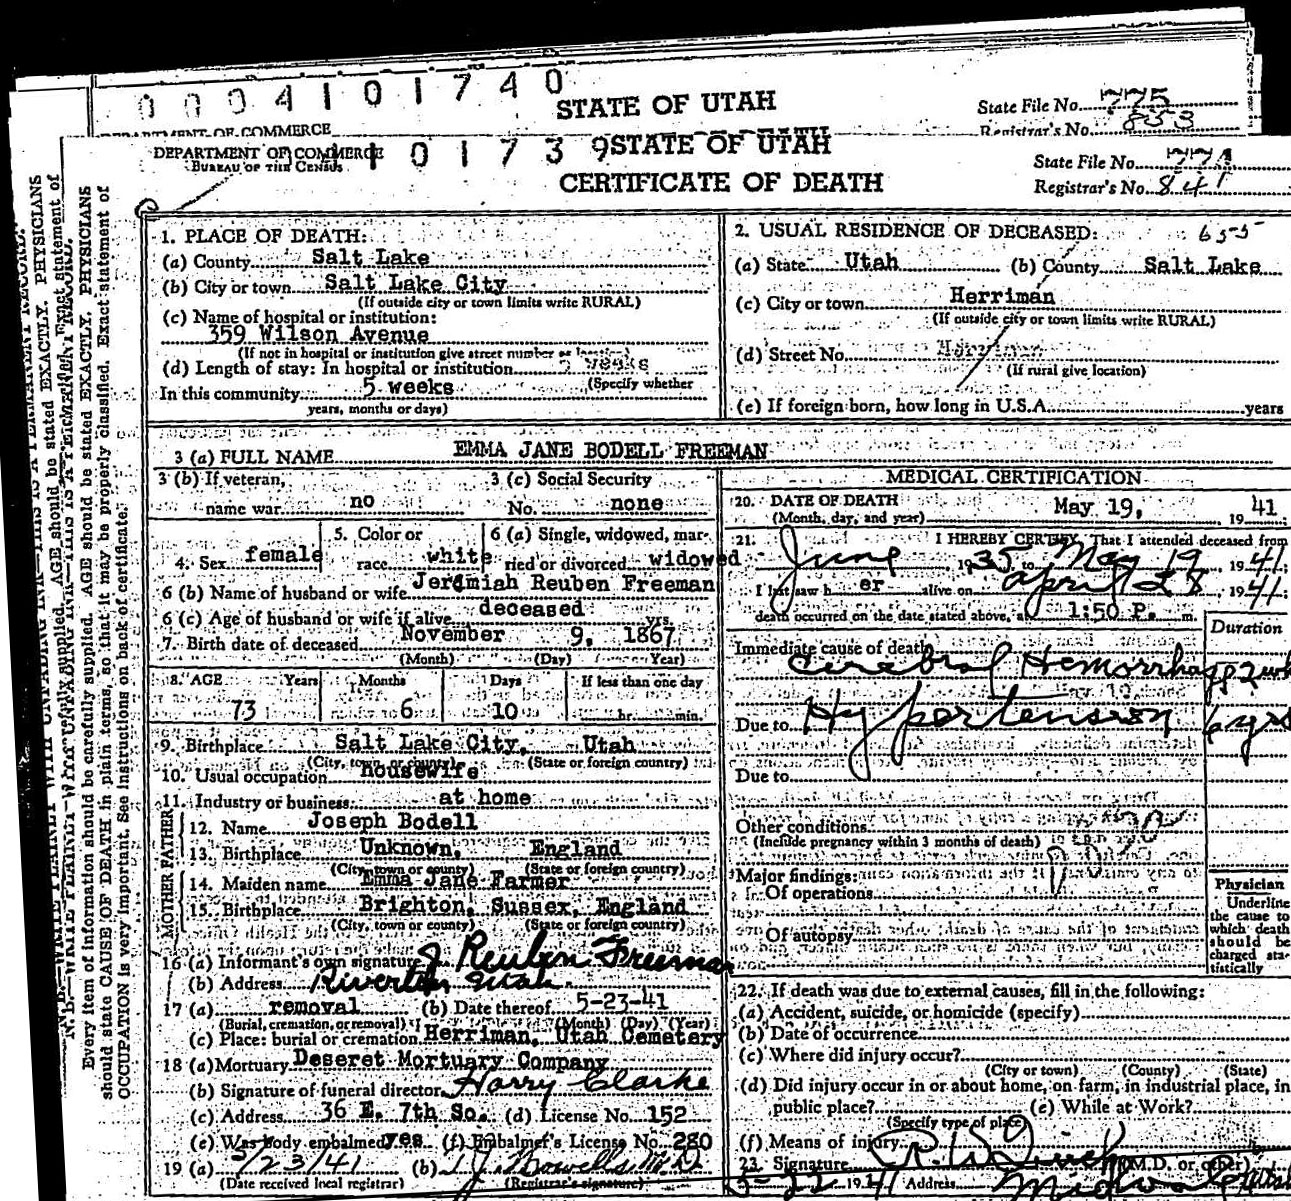 0004101740
STATE OF UTAH
State File No. 775
Registrar's No. 853
DEPARTMENT OF COMMERCE
101739
STATE OF UTAH
DEPARTMENT OF COMMERCE
BUREAU OF THE CENSUS
CERTIFICATE OF DEATH
State File No.
Registrar's No. 841
1. PLACE OF DEATH:
(a) County Salt Lake
(b) City or town Salt Lake City
(If outside city or town limits write RURAL)
(c) Name of hospital or institution:
359 Wilson Avenue
(If not in hospital or institution give street number or location)
(d) Length of stay: In hospital or institution 5 weeks
(Specify whether
In this community 5 weeks
years, months or days)
2. USUAL RESIDENCE OF DECEASED: 655
(a) State Utah (b) County Salt Lake
(c) City or town Herriman
(If outside city or town limits write RURAL)
(d) Street No. Herriman
(If rural give location)
(e) If foreign born, how long in U.S.A. years
3 (a) FULL NAME EMMA JANE BODELL FREEMAN
3 (b) If veteran, name war no
3 (c) Social Security No. none
4. Sex female
5. Color or race white
6 (a) Single, widowed, married or divorced widowed
6 (b) Name of husband or wife Jeremiah Reuben Freeman
6 (c) Age of husband or wife if alive deceased yrs.
7. Birth date of deceased November 9, 1867
(Month) (Day) (Year)
8. AGE Years Months Days If less than one day
73 6 10 hr. min.
9. Birthplace Salt Lake City, Utah
(City, town, or county) (State or foreign country)
10. Usual occupation housewife
11. Industry or business at home
FATHER
12. Name Joseph Bodell
13. Birthplace Unknown, England
(City, town or county) (State or foreign country)
MOTHER
14. Maiden name Emma Jane Farmer
15. Birthplace Brighton, Sussex, England
(City, town or county) (State or foreign country)
16 (a) Informant's own signature J Reuben Freeman
(b) Address Riverton Utah.
17 (a) removal (b) Date thereof 5-23-41
(Burial, cremation, or removal) (Month) (Day) (Year)
(c) Place: burial or cremation Herriman, Utah Cemetery
18 (a) Mortuary Deseret Mortuary Company
(b) Signature of funeral director Harry Clarke
(c) Address 36 E. 7th So. (d) License No. 152
(e) Was body embalmed yes (f) Embalmer's License No. 280
19 (a) 5/23/41 (b)
(Date received local registrar) (Registrar's signature)
MEDICAL CERTIFICATION
20. DATE OF DEATH May 19, 1941
(Month, day, and year)
21. I HEREBY CERTIFY, That I attended deceased from
June 1935 to May 19 1941
I last saw her alive on April 28, 1941
death occurred on the date stated above, at 1:50 P. m.
Duration
Immediate cause of death Cerebral Hemorrhage 2 wk
Due to Hypertension 6 yrs
Due to
Other conditions
(Include pregnancy within 3 months of death)
Major findings:
Of operations
Of autopsy
Physician
Underline
the cause to
which death
should be
charged sta-
tistically
22. If death was due to external causes, fill in the following:
(a) Accident, suicide, or homicide (specify)
(b) Date of occurrence
(c) Where did injury occur?
(City or town) (County) (State)
(d) Did injury occur in or about home, on farm, in industrial place, in
public place? (e) While at Work?
(Specify type of place)
(f) Means of injury
23. Signature (M.D. or other)
5-22 1941 Address Midvale Utah
N.B.—WRITE PLAINLY WITH UNFADING INK—THIS IS A PERMANENT RECORD.
Every item of information should be carefully supplied. AGE should be stated EXACTLY. PHYSICIANS
should state CAUSE OF DEATH in plain terms, so that it may be properly classified. Exact statement of
OCCUPATION is very important. See instructions on back of certificate.